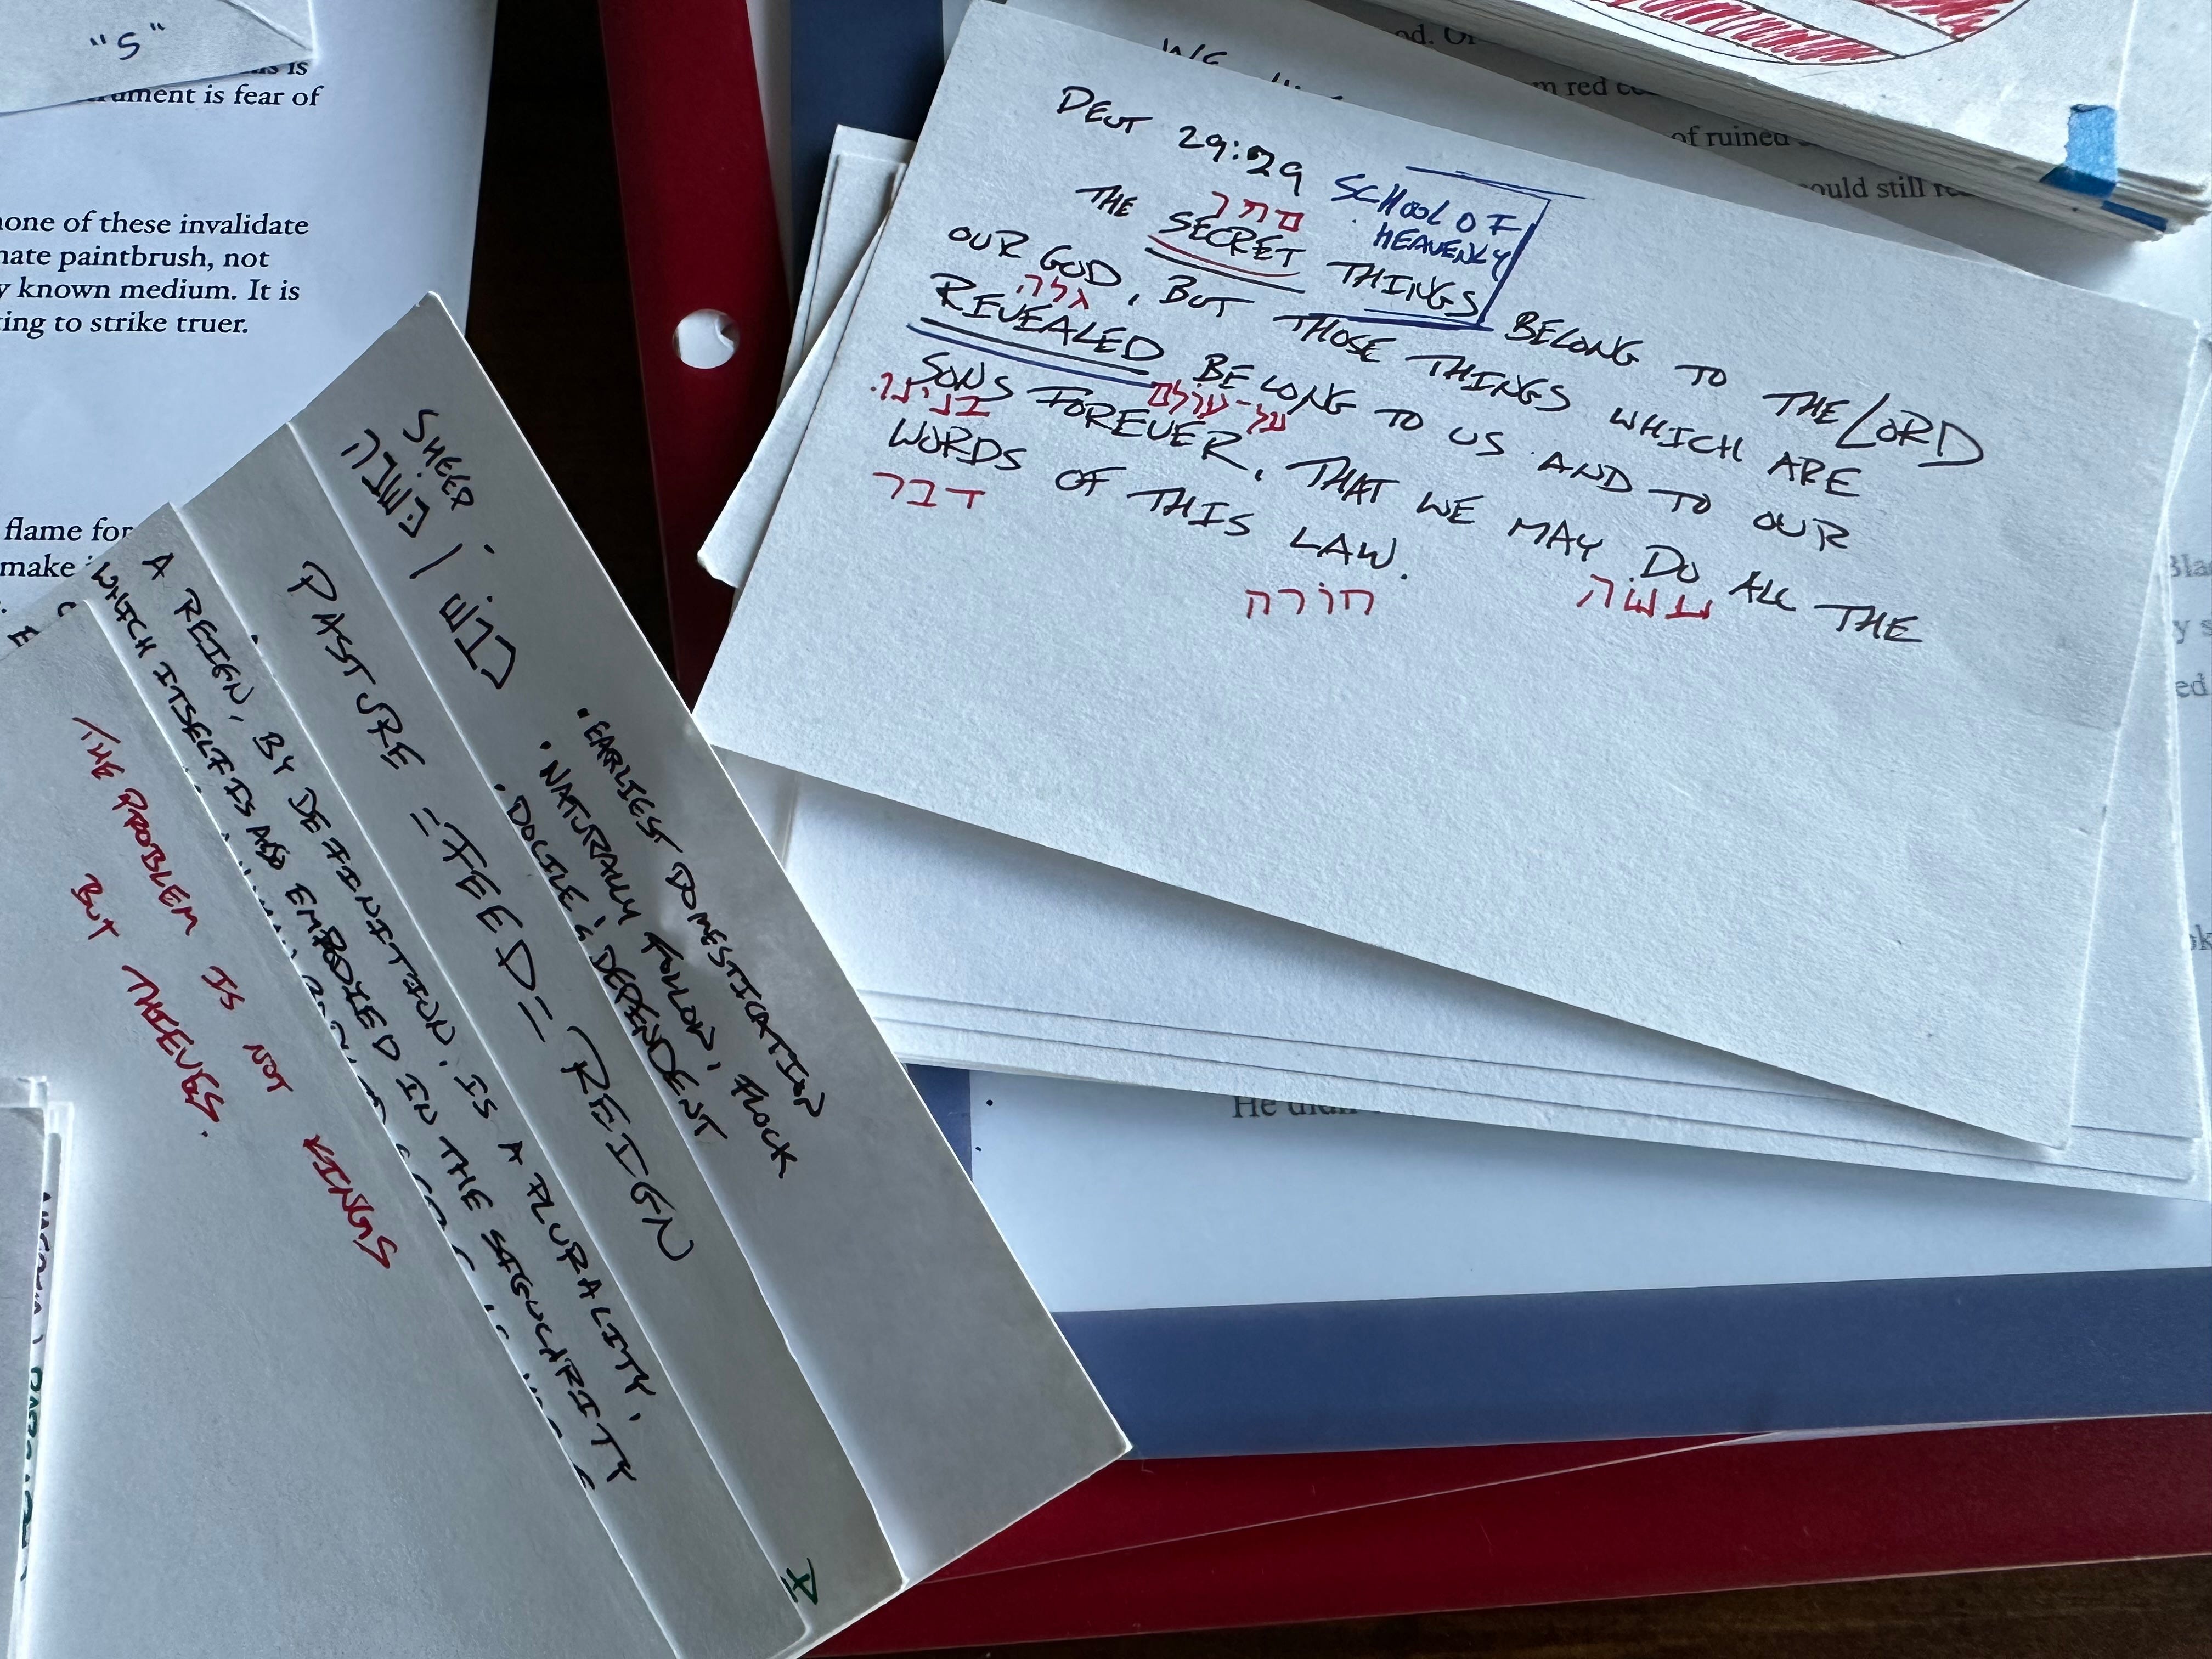 "S"
is
is fear of
none of these invalidate
paintbrush, not
known medium. It is
to strike truer.
flame for
make
WE
red
of ruined
could still
DEUT 29:29
SCHOOL OF
HEAVENLY
סתר
THE SECRET THINGS BELONG TO THE LORD
OUR GOD, BUT THOSE THINGS WHICH ARE
גלה
REVEALED BELONG TO US AND TO OUR
SONS FOREVER, THAT WE MAY DO ALL THE
בנינו
על-עולם
עשה
WORDS OF THIS LAW.
דבר
חורה
SHEEP
· EARLIEST DOMESTICATION
· NATURALLY FOLLOW, FLOCK
· DOCILE & DEPENDENT
PASTURE = FEED = REIGN
A REIGN, BY DEFINITION, IS A PLURALITY,
WHICH ITSELF IS EMBODIED IN THE SIGULARITY
THE PROBLEM IS NOT KINGS
BUT THIEVES.
He